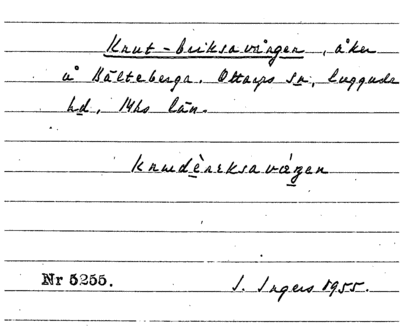 Knut-Eriksavången, åker
å Bälteberga. Ottarps sn, Luggude
hd, Mhs län.
knudèreksavángen
Nr 5255.
I. Ingers 1955.